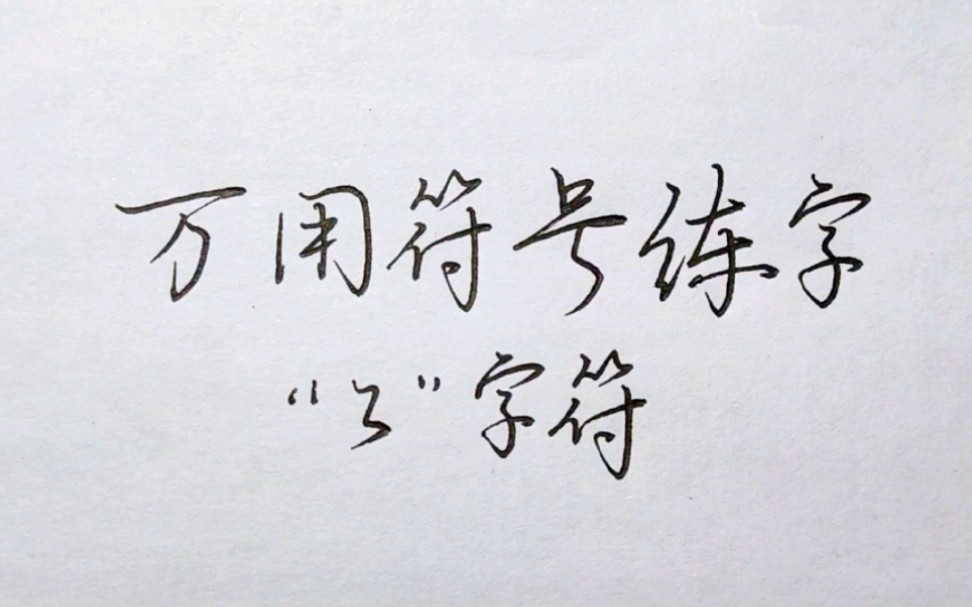 万用符号练字
“⺀”字符